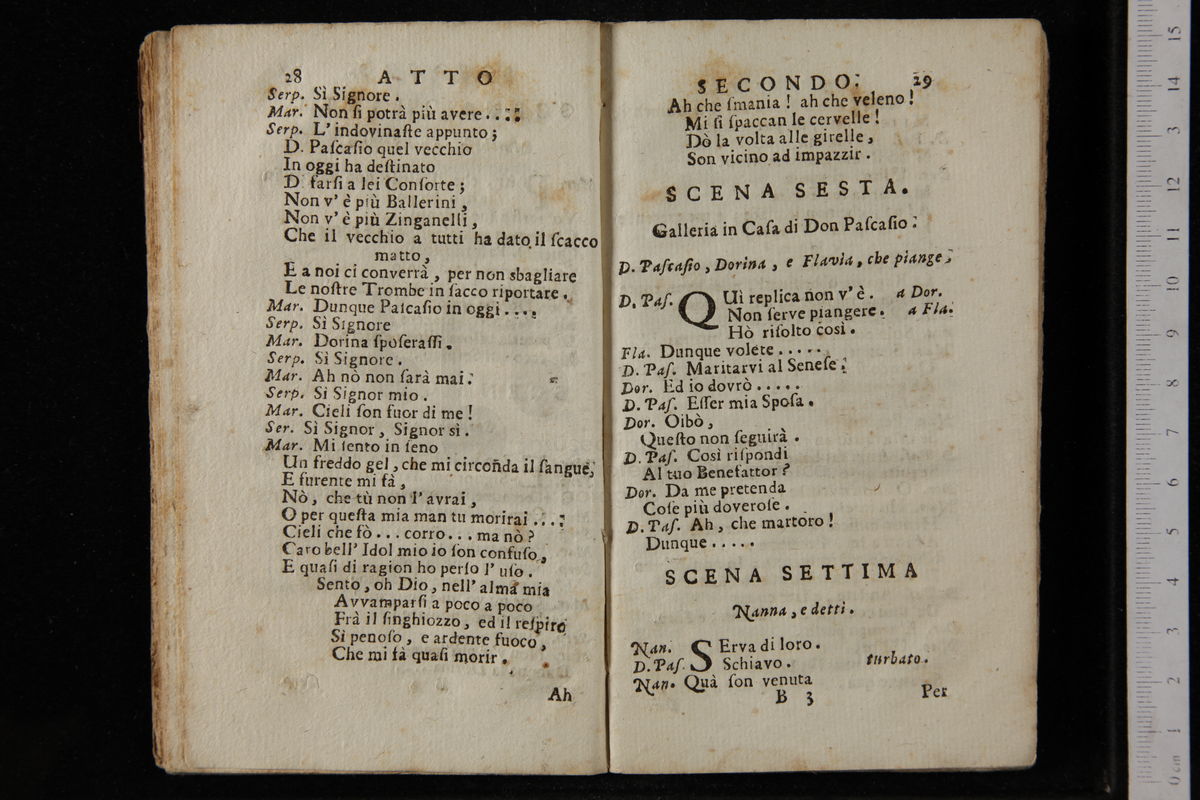 28 ATTO
Serp. Sì Signore.
Mar. Non ſi potrà più avere....
Serp. L'indovinaſte appunto;
D. Paſcaſio quel vecchio
In oggi ha deſtinato
D farſi a lei Conſorte;
Non v'è più Ballerini,
Non v'è più Zinganelli,
Che il vecchio a tutti ha dato il ſcacco
matto,
E a noi ci converrà, per non sbagliare
Le noſtre Trombe in ſacco riportare.
Mar. Dunque Paſcaſio in oggi....
Serp. Sì Signore
Mar. Dorina ſpoſeraſſi.
Serp. Sì Signore.
Mar. Ah nò non ſarà mai.
Serp. Si Signor mio.
Mar. Cieli ſon fuor di me!
Ser. Sì Signor, Signor sì.
Mar. Mi ſento in ſeno
Un freddo gel, che mi circonda il ſangue,
E furente mi fà,
Nò, che tù non l'avrai,
O per queſta mia man tu morirai....
Cieli che fò... corro... ma nò?
Caro bell'Idol mio io ſon confuſo,
E quaſi di ragion ho perſo l'uſo.
Sento, oh Dio, nell'alma mia
Avvamparſi a poco a poco
Frà il ſinghiozzo, ed il reſpiro
Si penoſo, e ardente fuoco,
Che mi fà quaſi morir.
Ah
SECONDO. 29
Ah che ſmania! ah che veleno!
Mi ſi ſpaccan le cervelle!
Dò la volta alle girelle,
Son vicino ad impazzir.
SCENA SESTA.
Galleria in Caſa di Don Paſcaſio.
D. Paſcaſio, Dorina, e Flavia, che piange.
D. Paſ. QUì replica non v'è. a Dor.
Non ſerve piangere. a Fla.
Hò riſolto così.
Fla. Dunque volete.....
D. Paſ. Maritarvi al Seneſe.
Dor. Ed io dovrò.....
D. Paſ. Eſſer mia Spoſa.
Dor. Oibò,
Queſto non ſeguirà.
D. Paſ. Così riſpondi
Al tuo Benefattor?
Dor. Da me pretenda
Coſe più doveroſe.
D. Paſ. Ah, che martoro!
Dunque.....
SCENA SETTIMA
Nanna, e detti.
Nan. SErva di loro.
D. Paſ. Schiavo. turbato.
Nan. Quà ſon venuta
B 3 Per